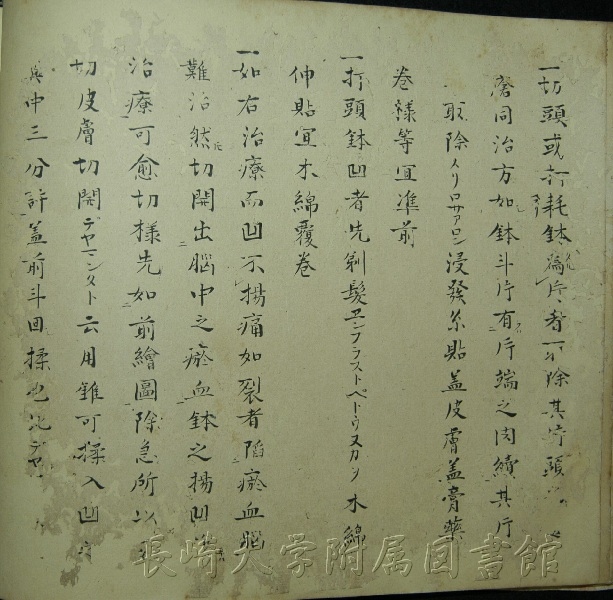 一切頭或打耗鉢為片者可除其片頭
磨同治方如鉢斗片有片端之肉續其片
取除メリロサアロン浸發糸貼蓋皮膚蓋膏藥
巻様等宜准前
一打頭鉢凹者先剃髪ヱンフラストペトウヌカソ木綿
伸貼宜木綿覆巻
一如右治療而凹不揚痛如裂者陷瘀血腦
難治然切開出腦中之瘀血鉢之揚凹
治療可愈切様先如前繪圖除急所以
切皮膚切開デヤマンスト云用錐可揉入凹
與中三分許蓋前斗回揉也比デヤ
長崎大学附属図書館